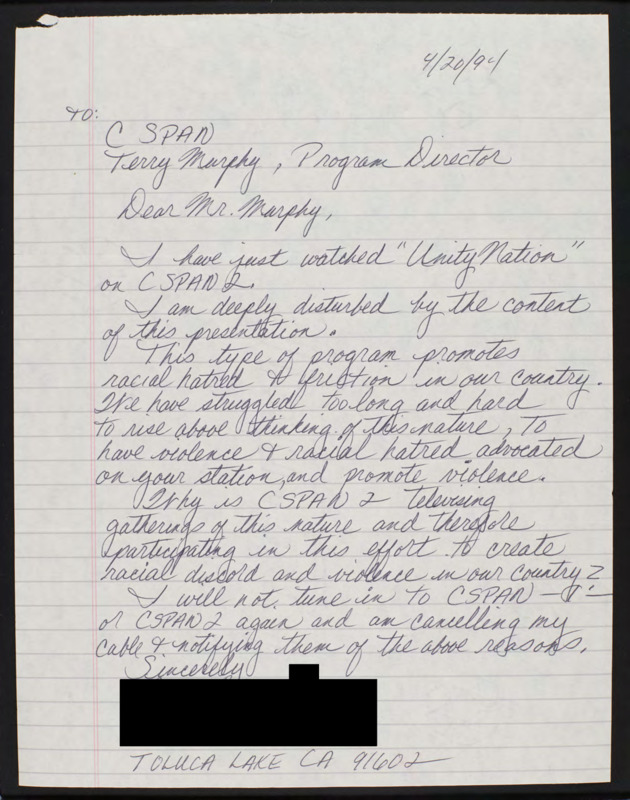 4/20/94
TO:
C SPAN
Terry Murphy, Program Director
Dear Mr. Murphy,
I have just watched "Unity Nation"
on CSPAN 2.
I am deeply disturbed by the content
of this presentation.
This type of program promotes
racial hatred & friction in our country.
We have struggled too long and hard
to rise above thinking of this nature, to
have violence & racial hatred advocated
on your station, and promote violence.
Why is CSPAN 2 televising
gatherings of this nature and therefore
participating in this effort to create
racial discord and violence in our country?
I will not tune in to CSPAN —
or CSPAN 2 again and am cancelling my
cable & notifying them of the above reasons.
Sincerely
TOLUCA LAKE CA 91602